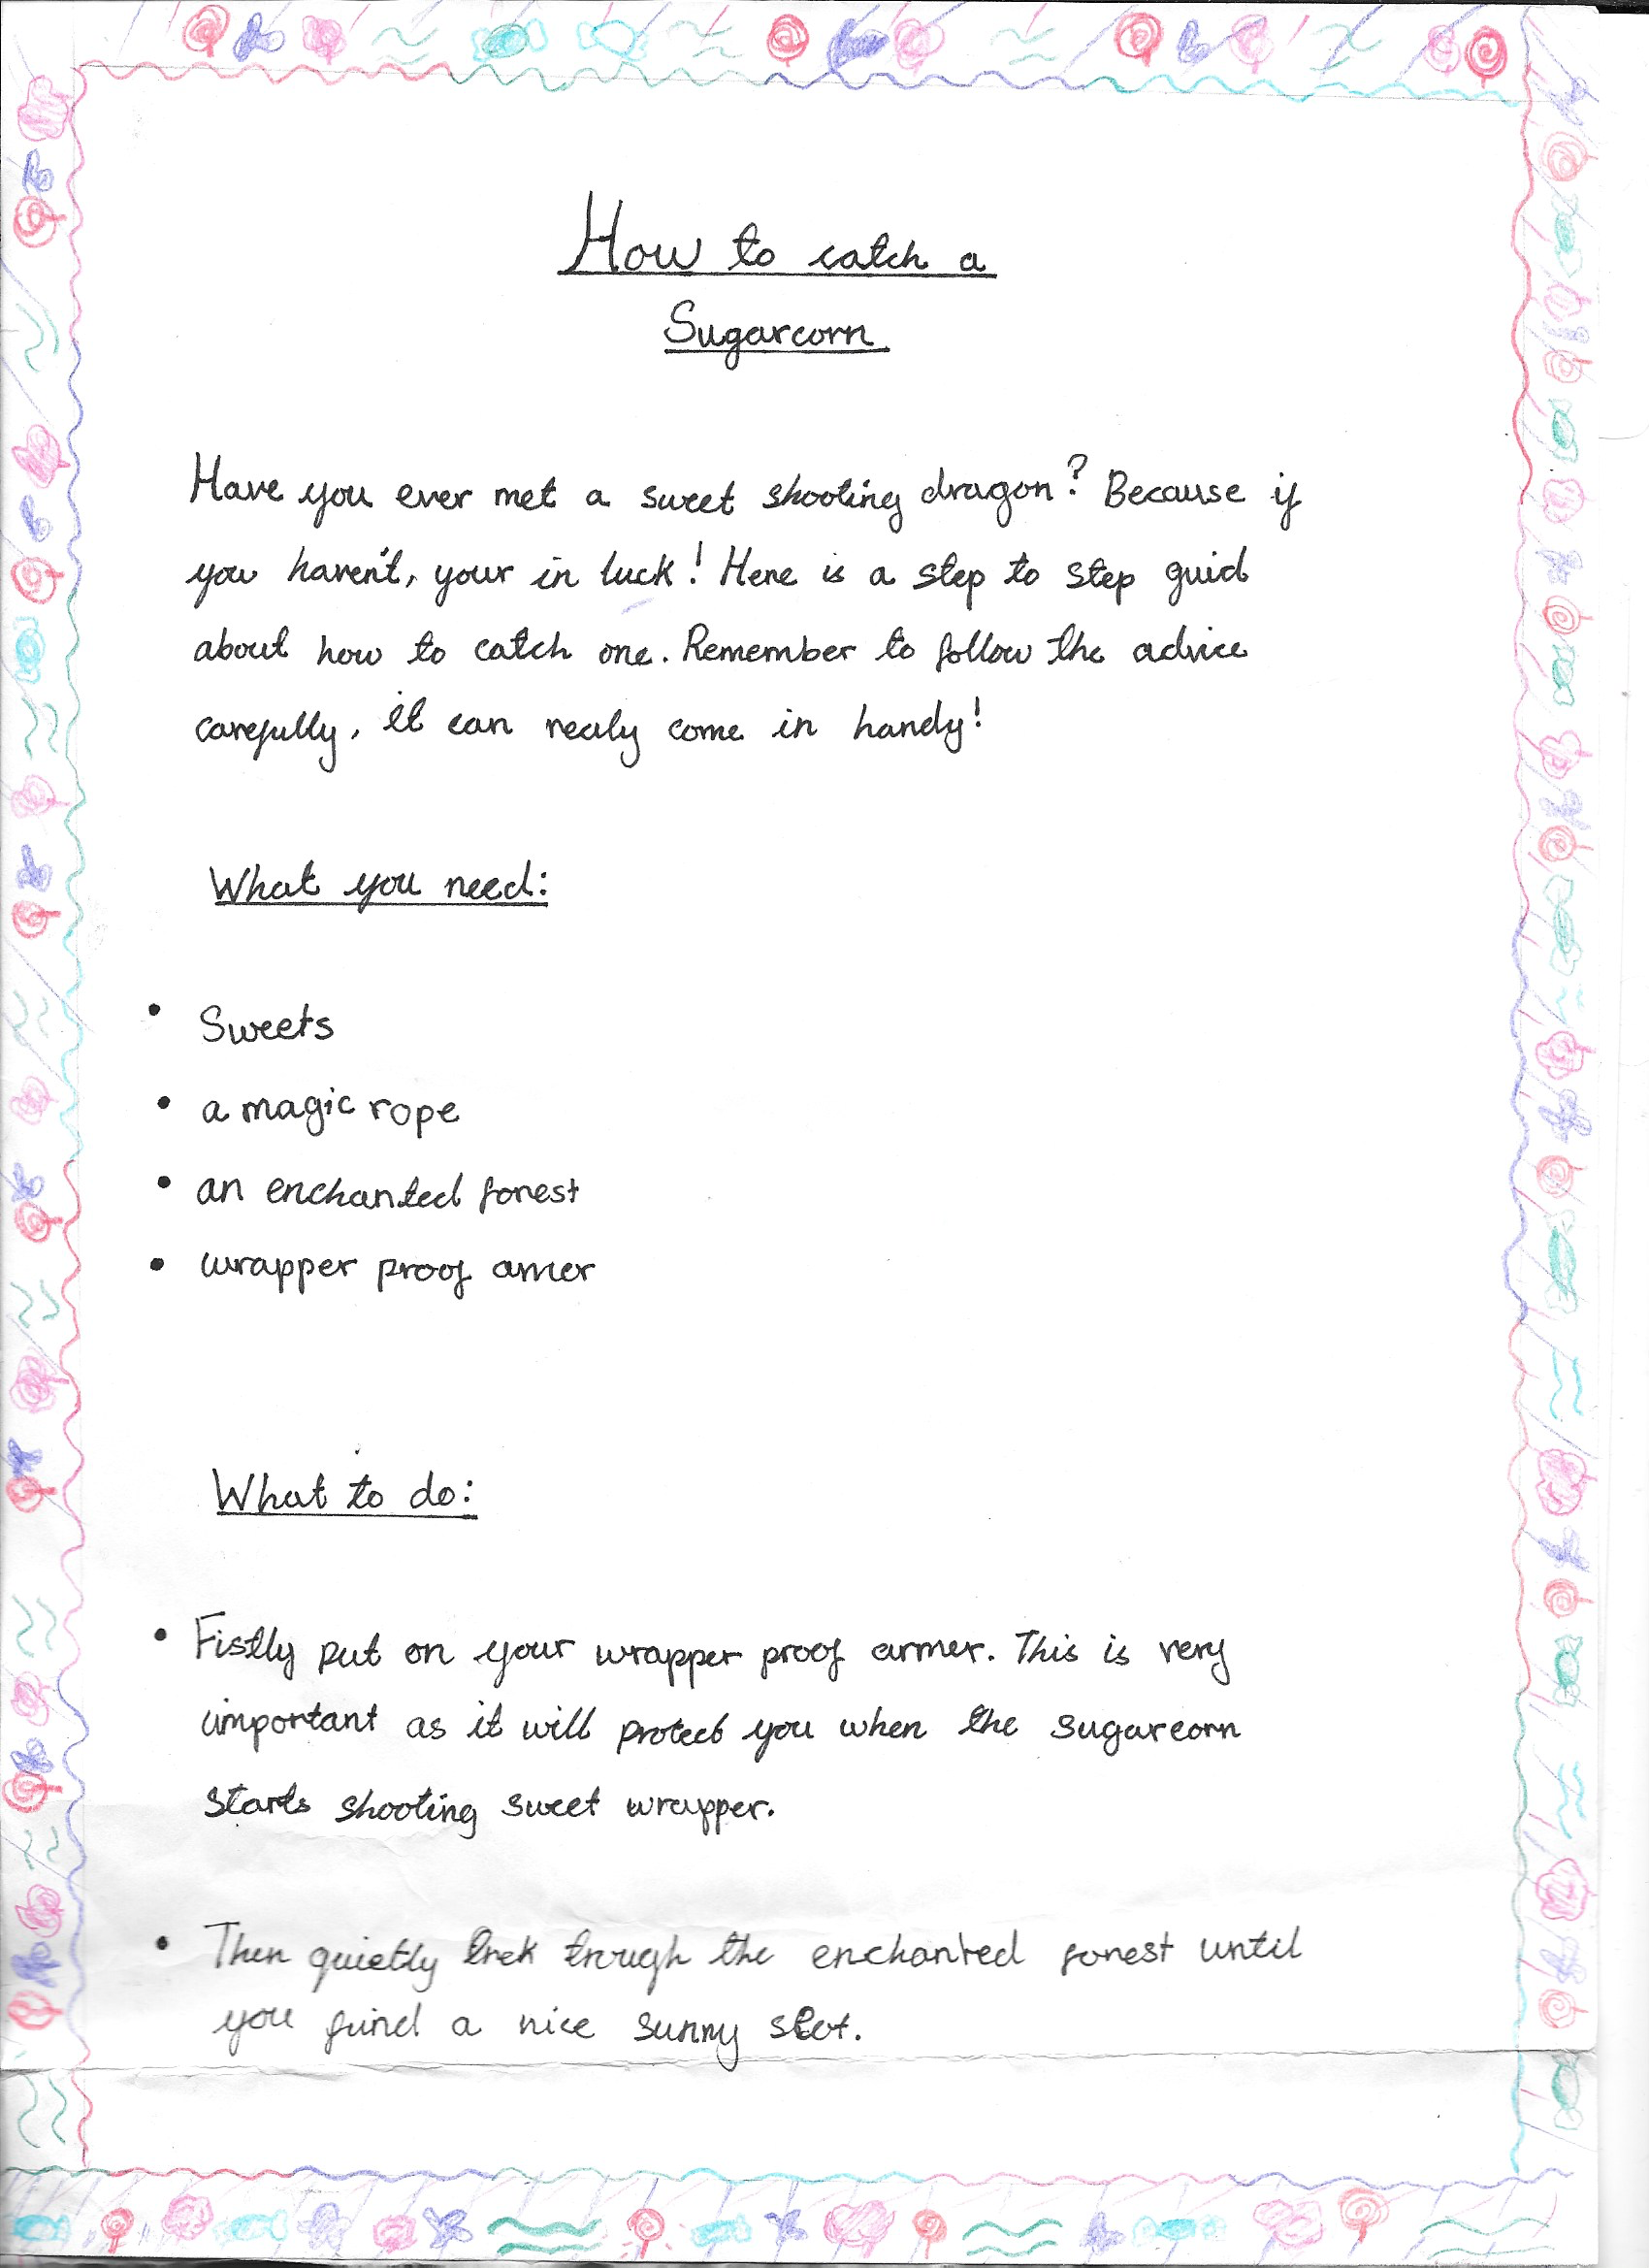 How to catch a
Sugarcorn
Have you ever met a sweet shooting dragon? Because if
you haven't, your in luck! Here is a step to step guid
about how to catch one. Remember to follow the advice
carefully, it can realy come in handy!
What you need:
• Sweets
• a magic rope
• an enchanted forest
• wrapper proof armer
What to do:
• Fistly put on your wrapper proof armer. This is very
important as it will protect you when the sugarcorn
starts shooting sweet wrapper.
• Then quietly trek trough the enchanted forest until
you find a nice sunny